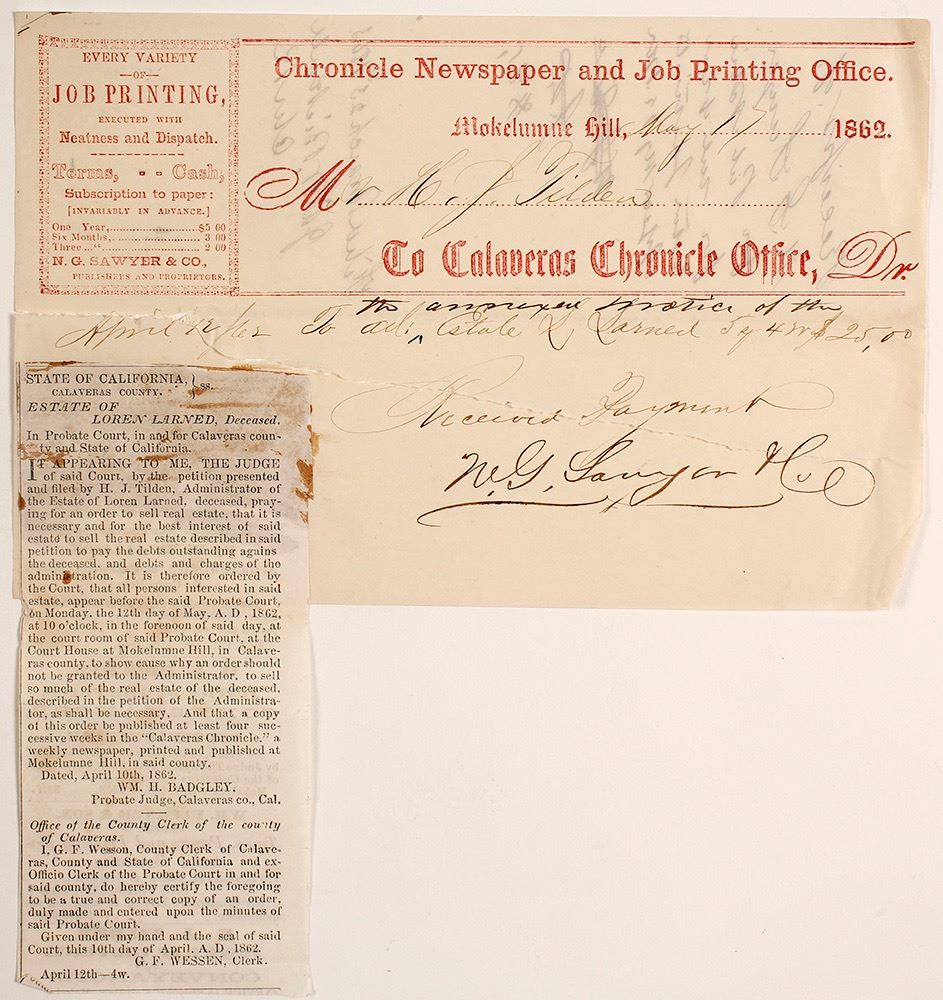 EVERY VARIETY
—OF—
JOB PRINTING,
EXECUTED WITH
Neatness and Dispatch.
Terms, - - Cash,
Subscription to paper:
[INVARIABLY IN ADVANCE.]
One Year,..............$5 00
Six Months,............ 3 00
Three ...“ ............ 2 00
N. G. SAWYER & CO.,
PUBLISHERS AND PROPRIETORS.
Chronicle Newspaper and Job Printing Office.
Mokelumne Hill, May 17 1862.
Mr H. J. Tilden
To Calaveras Chronicle Office, Dr.
the annexed notice of the
April 12/62 To adv Estate L Larned 4 w $25,00
Received Payment
N. G. Sawyer & Co
STATE OF CALIFORNIA, } ss.
CALAVERAS COUNTY.
ESTATE OF
LOREN LARNED, Deceased.
In Probate Court, in and for Calaveras coun-
ty and State of California.
IT APPEARING TO ME, THE JUDGE
of said Court, by the petition presented
and filed by H. J. Tilden, Administrator of
the Estate of Loren Larned, deceased, pray-
ing for an order to sell real estate, that it is
necessary and for the best interest of said
estate to sell the real estate described in said
petition to pay the debts outstanding agains
the deceased, and debts and charges of the
administration. It is therefore ordered by
the Court, that all persons interested in said
estate, appear before the said Probate Court,
on Monday, the 12th day of May, A. D , 1862,
at 10 o'clock, in the forenoon of said day, at
the court room of said Probate Court, at the
Court House at Mokelumne Hill, in Calave-
ras county, to show cause why an order should
not be granted to the Administrator, to sell
so much of the real estate of the deceased,
described in the petition of the Administra-
tor, as shall be necessary. And that a copy
of this order be published at least four suc-
cessive weeks in the “Calaveras Chronicle,” a
weekly newspaper, printed and published at
Mokelumne Hill, in said county.
Dated, April 10th, 1862.
WM. H. BADGLEY,
Probate Judge, Calaveras co., Cal.
Office of the County Clerk of the county
of Calaveras.
I, G. F. Wesson, County Clerk of Calave-
ras, County and State of California and ex-
Officio Clerk of the Probate Court in and for
said county, do hereby certify the foregoing
to be a true and correct copy of an order,
duly made and entered upon the minutes of
said Probate Court.
Given under my hand and the seal of said
Court, this 10th day of April, A. D , 1862.
G. F. WESSEN, Clerk.
April 12th—4w.